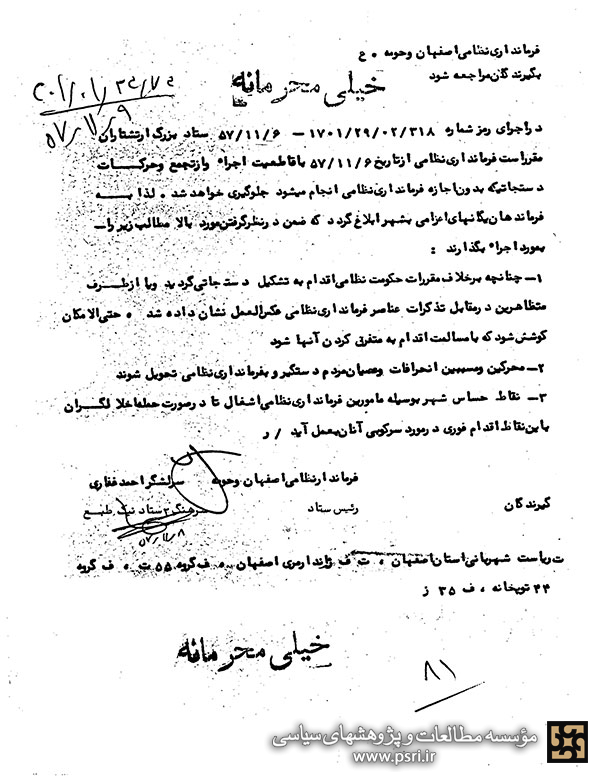 فرمانداری نظامی اصفهان وحومه . ع
بگیرندگان مراجعه شود
خیلی محرمانه
۵۷/۱۱/۹
دراجرای رمز شماره ۱۷۰۱/۲۹/۰۲/۳۱۸ — ۵۷/۱۱/۶ ستاد بزرگ ارتشتاران
مقرراست فرمانداری نظامی ازتاریخ ۵۷/۱۱/۶ باقاطعیت اجراء وازتجمع وحرکات
دستجاتیکه بدون اجازه فرمانداری نظامی انجام میشود جلوگیری خواهد شد . لذا به
فرماندهان یگانهای اعزامی بشهر ابلاغ گردد که ضمن درنظرگرفتن مورد بالا مطالب زیر را
بمورد اجراء بگذارند :
۱— چنانچه برخلاف مقررات حکومت نظامی اقدام به تشکیل دستجاتی گردید ویا ازطرف
متظاهرین درمقابل تذکرات عناصر فرمانداری نظامی عکس العمل نشان داده شد . حتی الامکان
کوشش شود که با مسالمت اقدام به متفرق کردن آنها شود
۲— محرکین ومسببین انحرافات وعصیان مردم دستگیر و بفرمانداری نظامی تحویل شوند
۳— نقاط حساس شهر بوسیله مامورین فرمانداری نظامی اشغال تا درصورت حمله اخلالگران
باین نقاط اقدام فوری درمورد سرکوبی آنان بعمل آید / ر
فرماندار نظامی اصفهان وحومه سرلشگر احمد غفاری
گیرندگان رئیس ستاد سرهنگ ۲ ستاد نیک طبع
۵۷/۱۱/۸
ت ریاست شهربانی استان اصفهان ، ت ف ژاندارمری اصفهان . ف گروه ۵۵ ت . ف گروه
۴۴ توپخانه ، ف ۳۵ ز
خیلی محرمانه
۸۱
مؤسسه مطالعات و پژوهشهای سیاسی
www.psri.ir